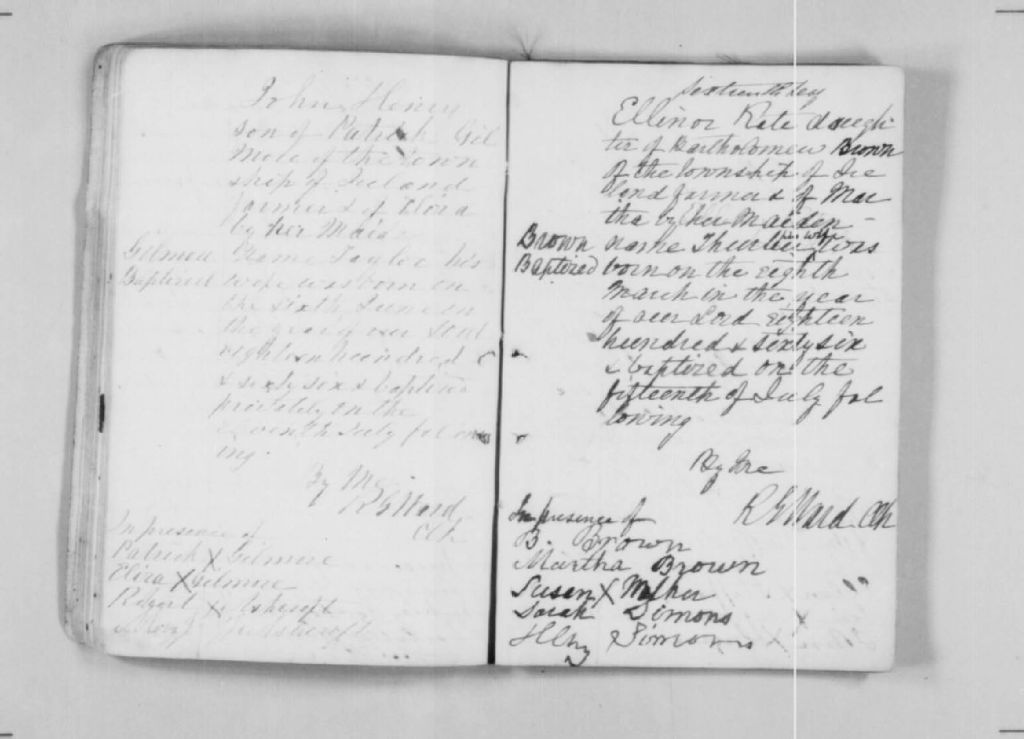 John Henry
son of Patrick Gil
more of the town
ship of Ireland
farmer & of Eliza
by her Maid
Gilmore Name Taylor his
Baptized wife was born on
the sixth June in
the year of our Lord
eighteen hundred
& sixty six & baptized
privately on the
seventh July follow
ing.
By Me
R G Ward
Clk
In presence of
Patrick X Gilmore
Eliza X Gilmore
Robert X Ashcroft
Ashcroft
sixteenth day
Ellinor Kate daugh
ter of Bartholomew Brown
of the township of Ire
land farmer & of Mar
tha by her Maiden
his wife
Brown name Thurber was
Baptized born on the eighth
March in the year
of our Lord eighteen
hundred & sixty six
& baptized on the
fifteenth of July fol
lowing
By Me
R G Ward Clk
In presence of
B. Brown
Martha Brown
Susan X Maher
Sarah Simons
Henry Simons